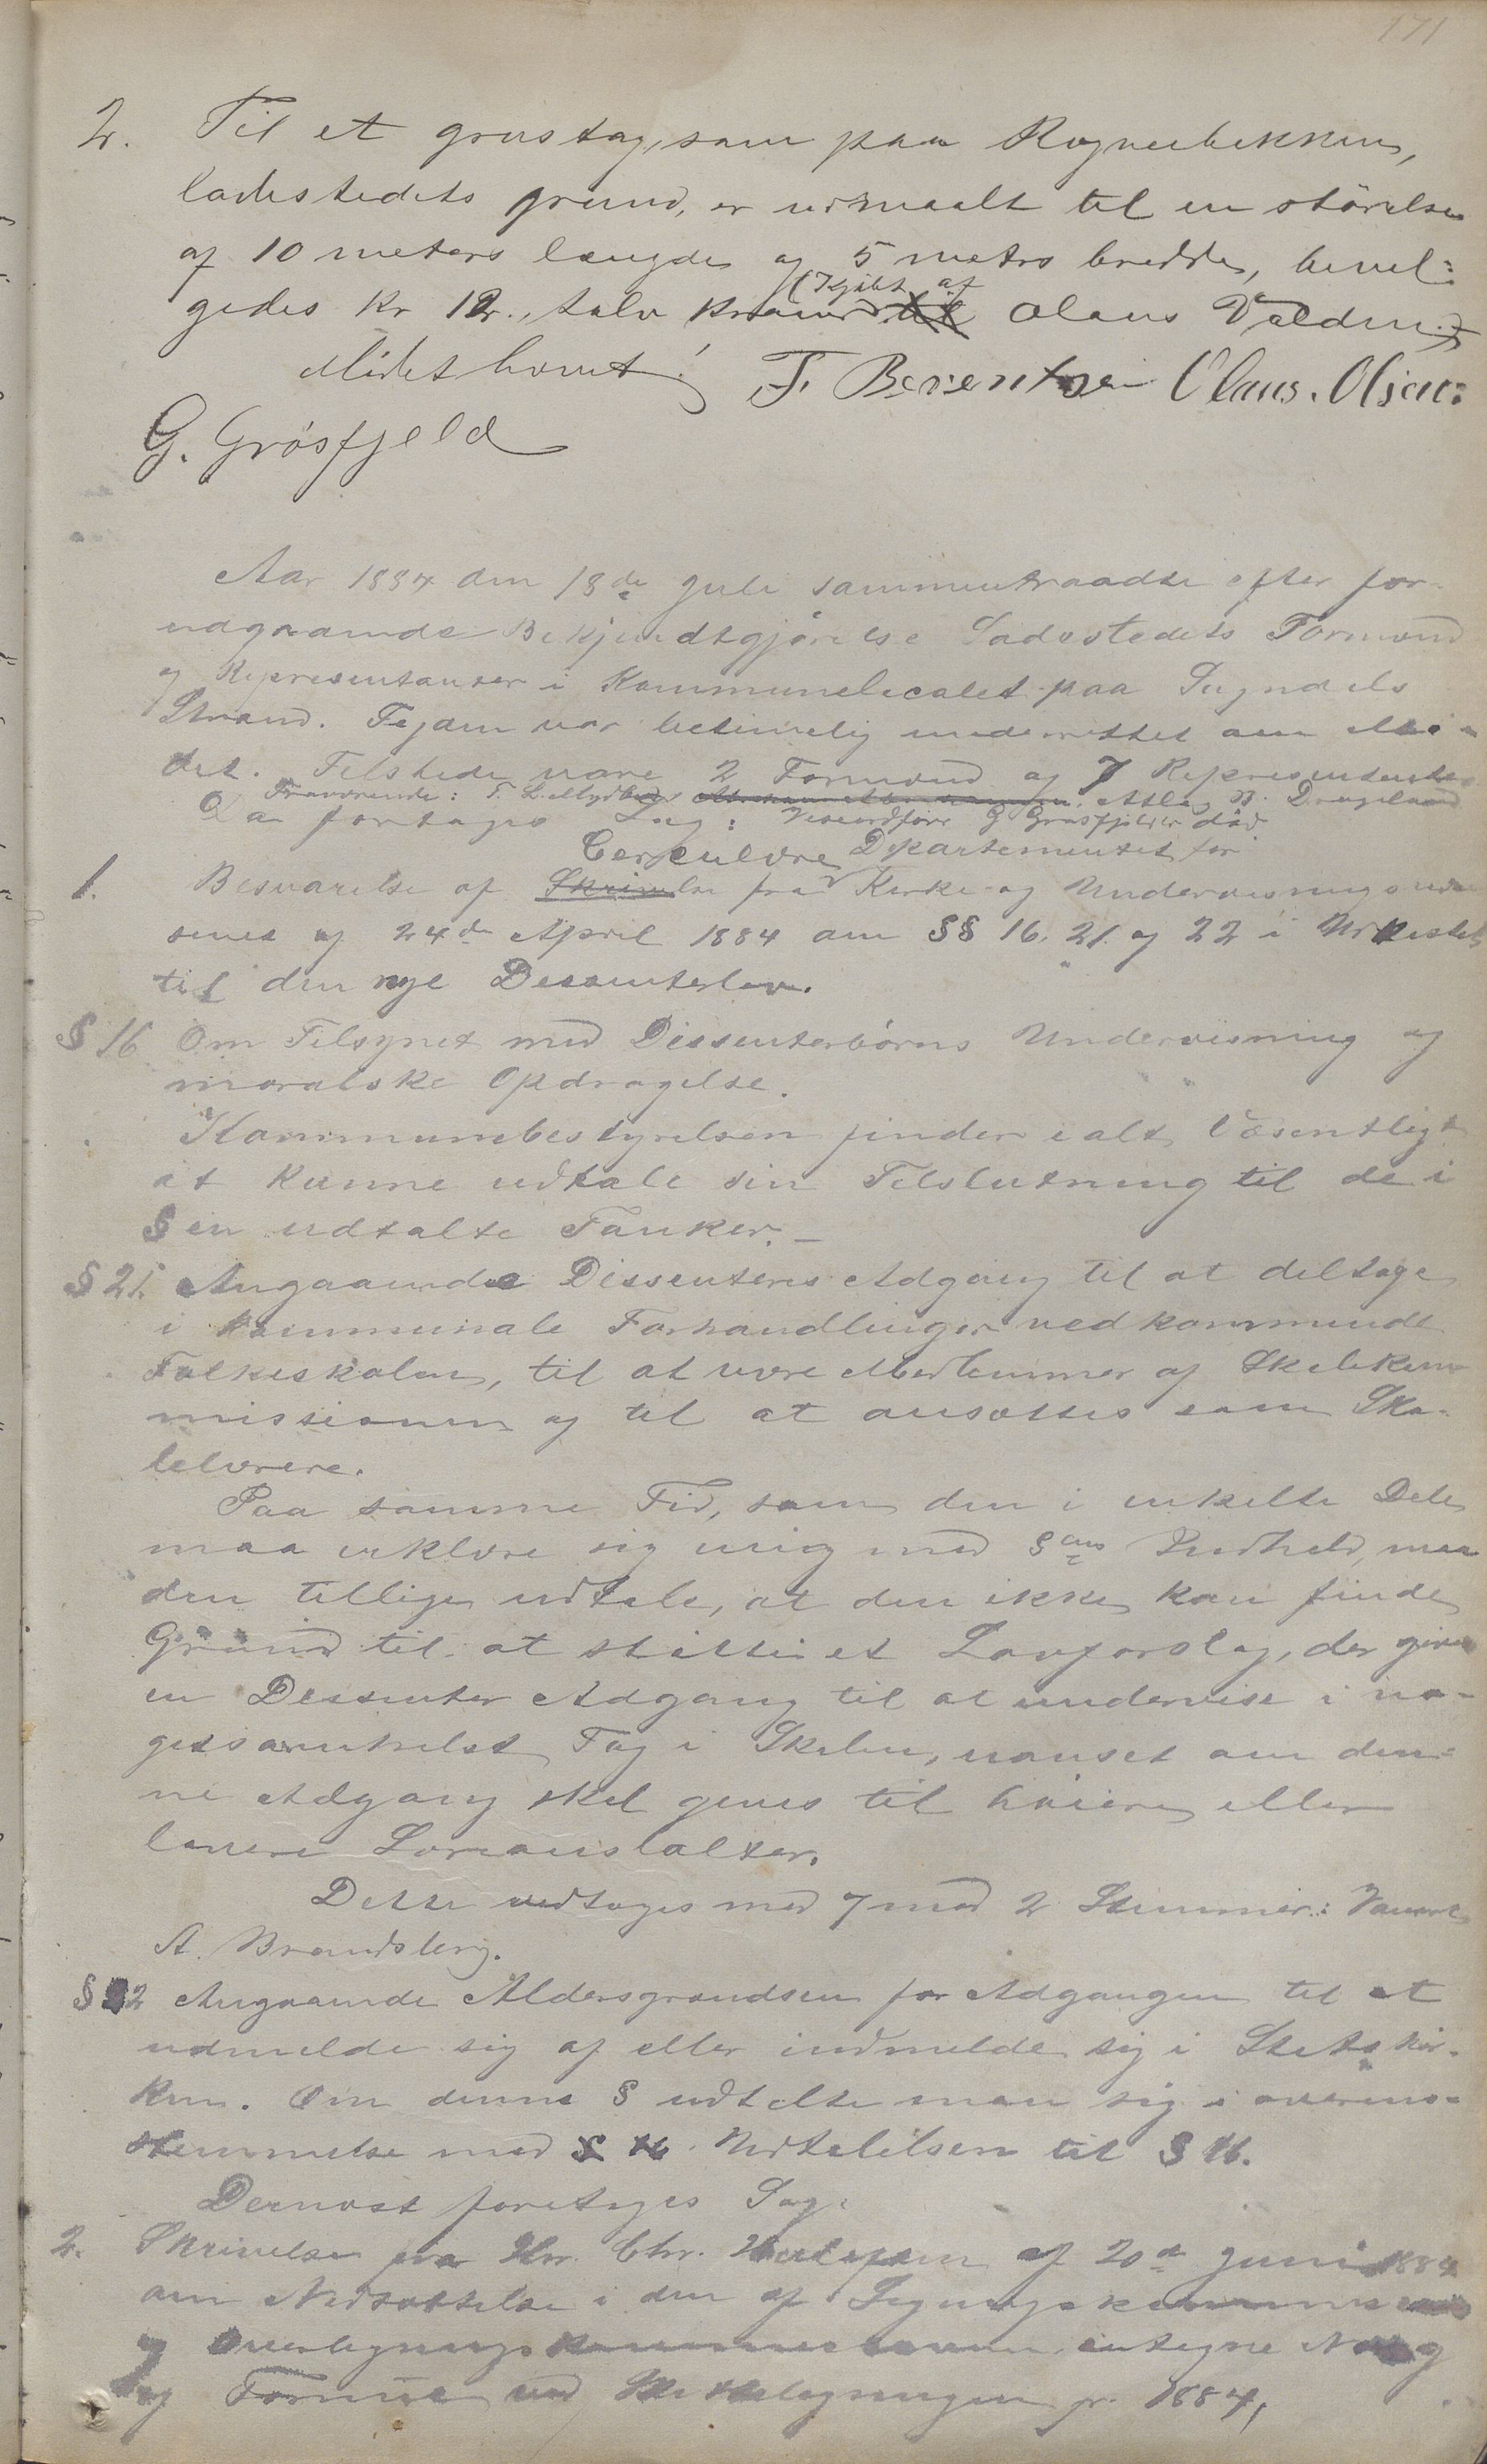 171
2. Til et grustag, som paa Rognebekken,
ladestedets grund, er udmaalt til en størelse
af 10 meters længde og 5 metrs bredde, bevil-
gedes Kr 12., tolv kroner (Kjøbt af Olaus Valdem.)
Mødet hævet!
F. Berentsen Claus. Olsen:
G. Grøsfjeld
Aar 1884 den 18de Juli sammentraadte efter for-
udgaaende Bekjendtgjørelse Ladestedets Formænd
og Repræsentanter i Kommunelocalet paa Sogndals
Strand. Fogden var betimelig underrettet om Mø-
det. Tilstede vare 2 Formænd og 7 Repræsentanter
Fraværende: Atle, N. Drageland
Viceordfører G Grøsfjeld er død
Da foretages Sag:
1. Besvarelse af Cerculære fra Departementet for Kirke- og Undervisningsvæ-
senet af 24de April 1884 om §§ 16. 21. og 22 i Udkastet
til den nye Dissenterlov.
§ 16 Om Tilsynet med Dissenterbørns Undervisning og
moralske Opdragelse.
Kommunebestyrelsen finder i alt Væsentligt
at kunne udtale sin Tilslutning til de i
§en udtalte Tanker. –
§ 21. Angaaende Dissenteres Adgang til at deltage
i kommunale Forhandlinger vedkommende
Folkeskolen, til at være Medlemmer af Skolekom-
missionen og til at ansættes som Sko-
lelærere.
Paa samme Tid, som den i enkelte Dele
maa erklære sig enig med §ens Indhold, maa
den tillige udtale, at den ikke kan finde
Grund til at støtte et Lovforslag, der giver
en Dissenter Adgang til at undervise i no-
getsomhelst Fag i Skolen, uanset om den-
ne Adgang skal gives til høiere eller
lavere Læreanstalter.
Dette vedtoges med 7 mod 2 Stemmer:
A. Brandsberg.
§ 22 Angaaende Aldersgrændsen for Adgangen til at
udmelde sig af eller indmelde sig i Statskir-
ken. Om denne § udtalte man sig i overens-
stemmelse med Udtalelsen til § 16.
Dernæst foretages Sag:
2. Skrivelse fra Hr. Chr. af 20de Juni 1884
om Nedsættelse i den af Ligningskommissionen
og Overligningskommissionen antagne Næring
og Formue ved Skatteligningen pr. 1884,